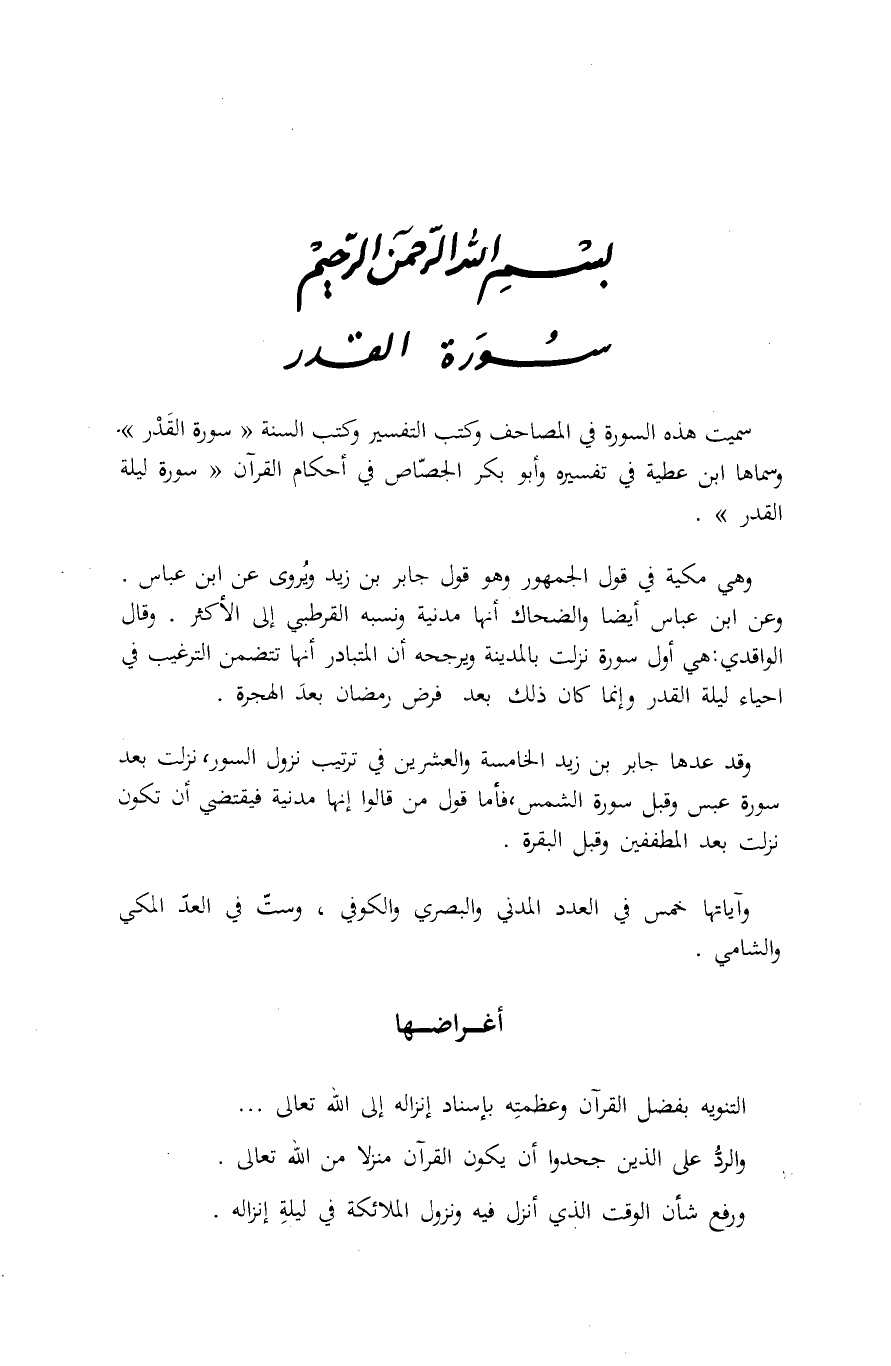 بِسْمِ اللهِ الرَّحْمَنِ الرَّحِيمْ
سُورَة القدر
سميت هذه السورة في المصاحف وكتب التفسير وكتب السنة « سورة القَدْر ».
وسماها ابن عطية في تفسيره وأبو بكر الجصّاص في أحكام القرآن « سورة ليلة
القدر » .
وهي مكية في قول الجمهور وهو قول جابر بن زيد ويُروى عن ابن عباس .
وعن ابن عباس أيضا والضحاك أنها مدنية ونسبه القرطبي إلى الأكثر . وقال
الواقدي:هي أول سورة نزلت بالمدينة ويرجحه أن المتبادر أنها تتضمن الترغيب في
احياء ليلة القدر وإنما كان ذلك بعد فرض رمضان بعدَ الهجرة .
وقد عدها جابر بن زيد الخامسة والعشرين في ترتيب نزول السور،نزلت بعد
سورة عبس وقبل سورة الشمس،فأما قول من قالوا إنها مدنية فيقتضي أن تكون
نزلت بعد المطففين وقبل البقرة .
وآياتها خمس في العدد المدني والبصري والكوفي ، وستّ في العدّ المكي
والشامي .
أغـراضـها
التنويه بفضل القرآن وعظمتِه بإسناد إنزاله إلى الله تعالى ...
والردُّ على الذين جحدوا أن يكون القرآن منزلا من الله تعالى .
ورفع شأن الوقت الذي أنزل فيه ونزول الملائكة في ليلةِ إنزاله .